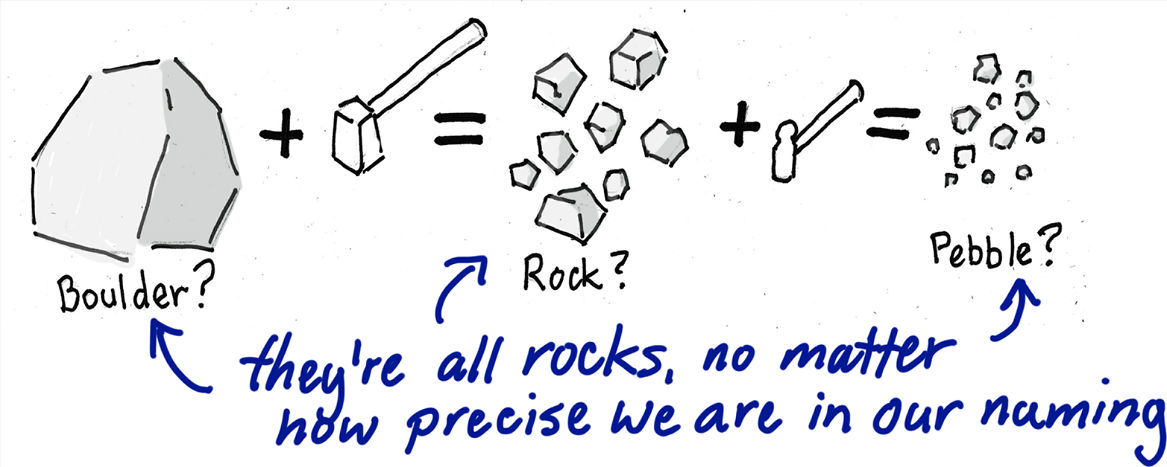 + = + =
Boulder?
Rock?
Pebble?
they're all rocks, no matter
how precise we are in our naming